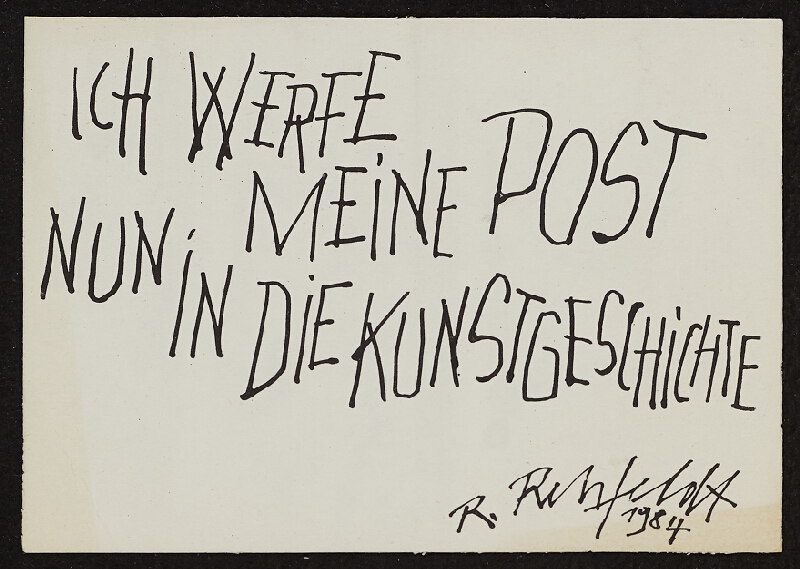 ICH WERFE
MEINE POST
NUN IN DIE KUNSTGESCHICHTE
R. Rehfeldt
1984